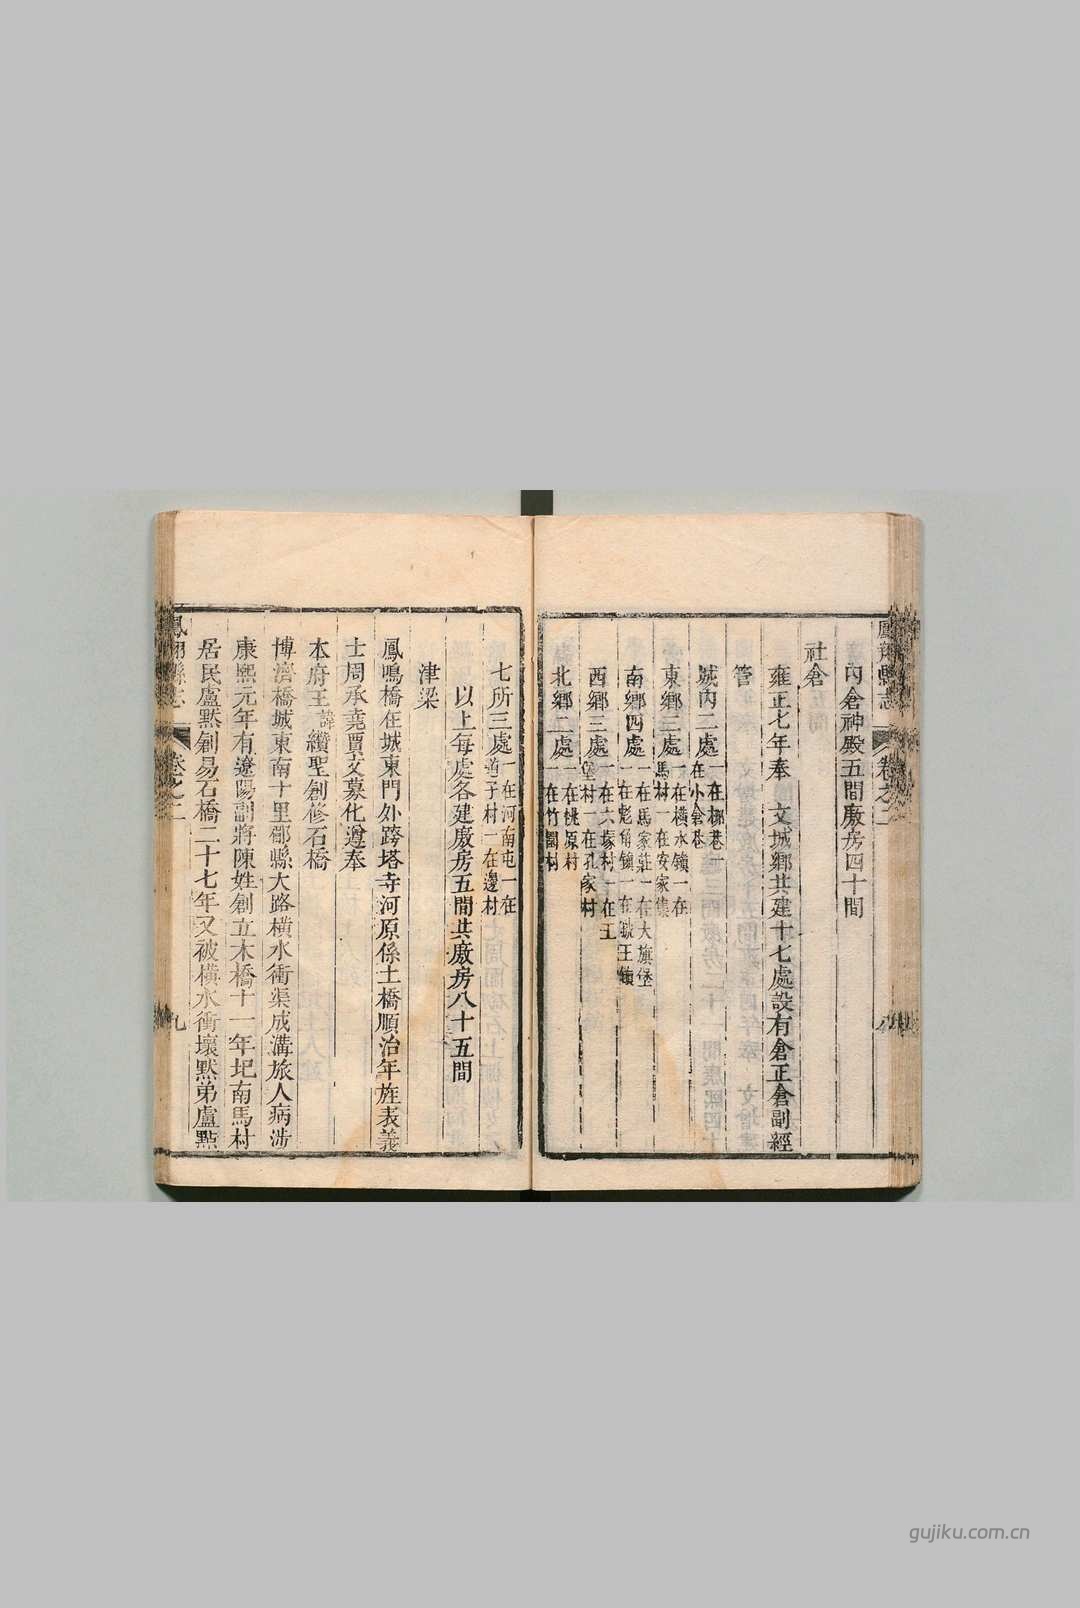 鳳翔縣志 卷之二
內倉神殿五間廒房四十間
社倉
雍正七年奉 文城鄉共建十七處設有倉正倉副經
管
城內二處一在柳巷一
在小倉巷
東鄉三處一在橫水鎮一在
馬村一在安家集
南鄉四處一在馬家莊一在大旗堡
一在老角鎮一在虢王鎮
西鄉三處一在六塚村一在王
堡村一在孔家村
北鄉二處一在桃原村
一在竹園村
七所三處一在河南屯一在
道子村一在邊村
以上每處各建廒房五間共廒房八十五間
津梁
鳳鳴橋在城東門外跨塔寺河原係土橋順治年旌表義
士周承堯賈文募化遵奉
本府王諱纘聖創修石橋
博濟橋城東南十里郿縣大路橫水衝渠成溝旅人病涉
康熙元年有遼陽副將陳姓創立木橋十一年圮南馬村
居民盧默創易石橋二十七年又被橫水衝壞默弟盧點
鳳翔縣志 卷之二 九
gujiku.com.cn